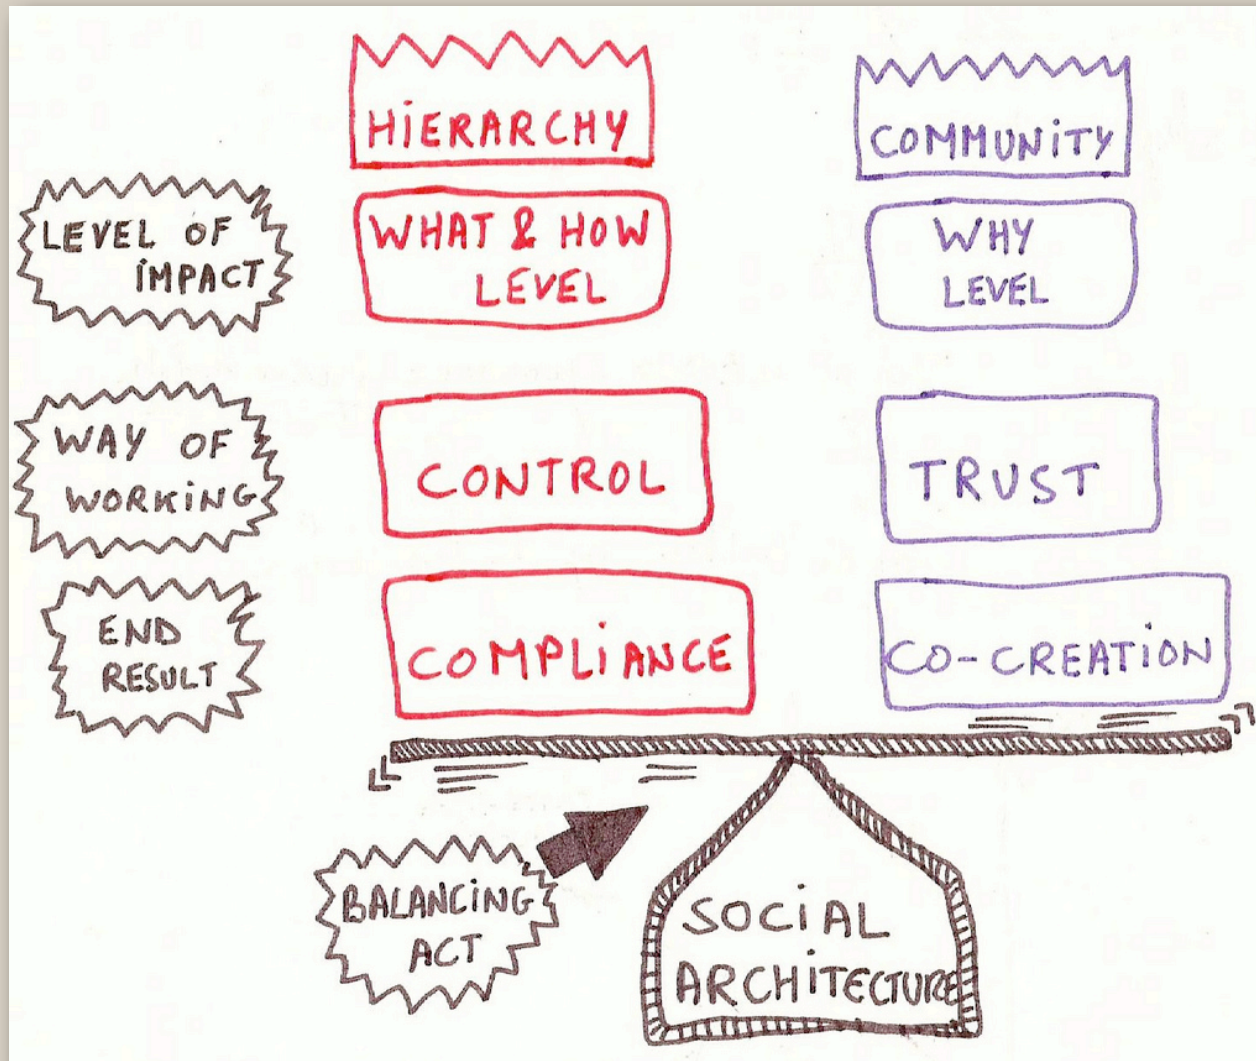 HiERARCHY
COMMUNiTY
LEVEL OF
iMPACT
WHAT & HOW
LEVEL
WHY
LEVEL
WAY OF
WORKiNG
CONTROL
TRUST
END
RESULT
COMPLiANCE
CO-CREATiON
BALANCiNG
ACT
SOCiAL
ARCHiTECTURE